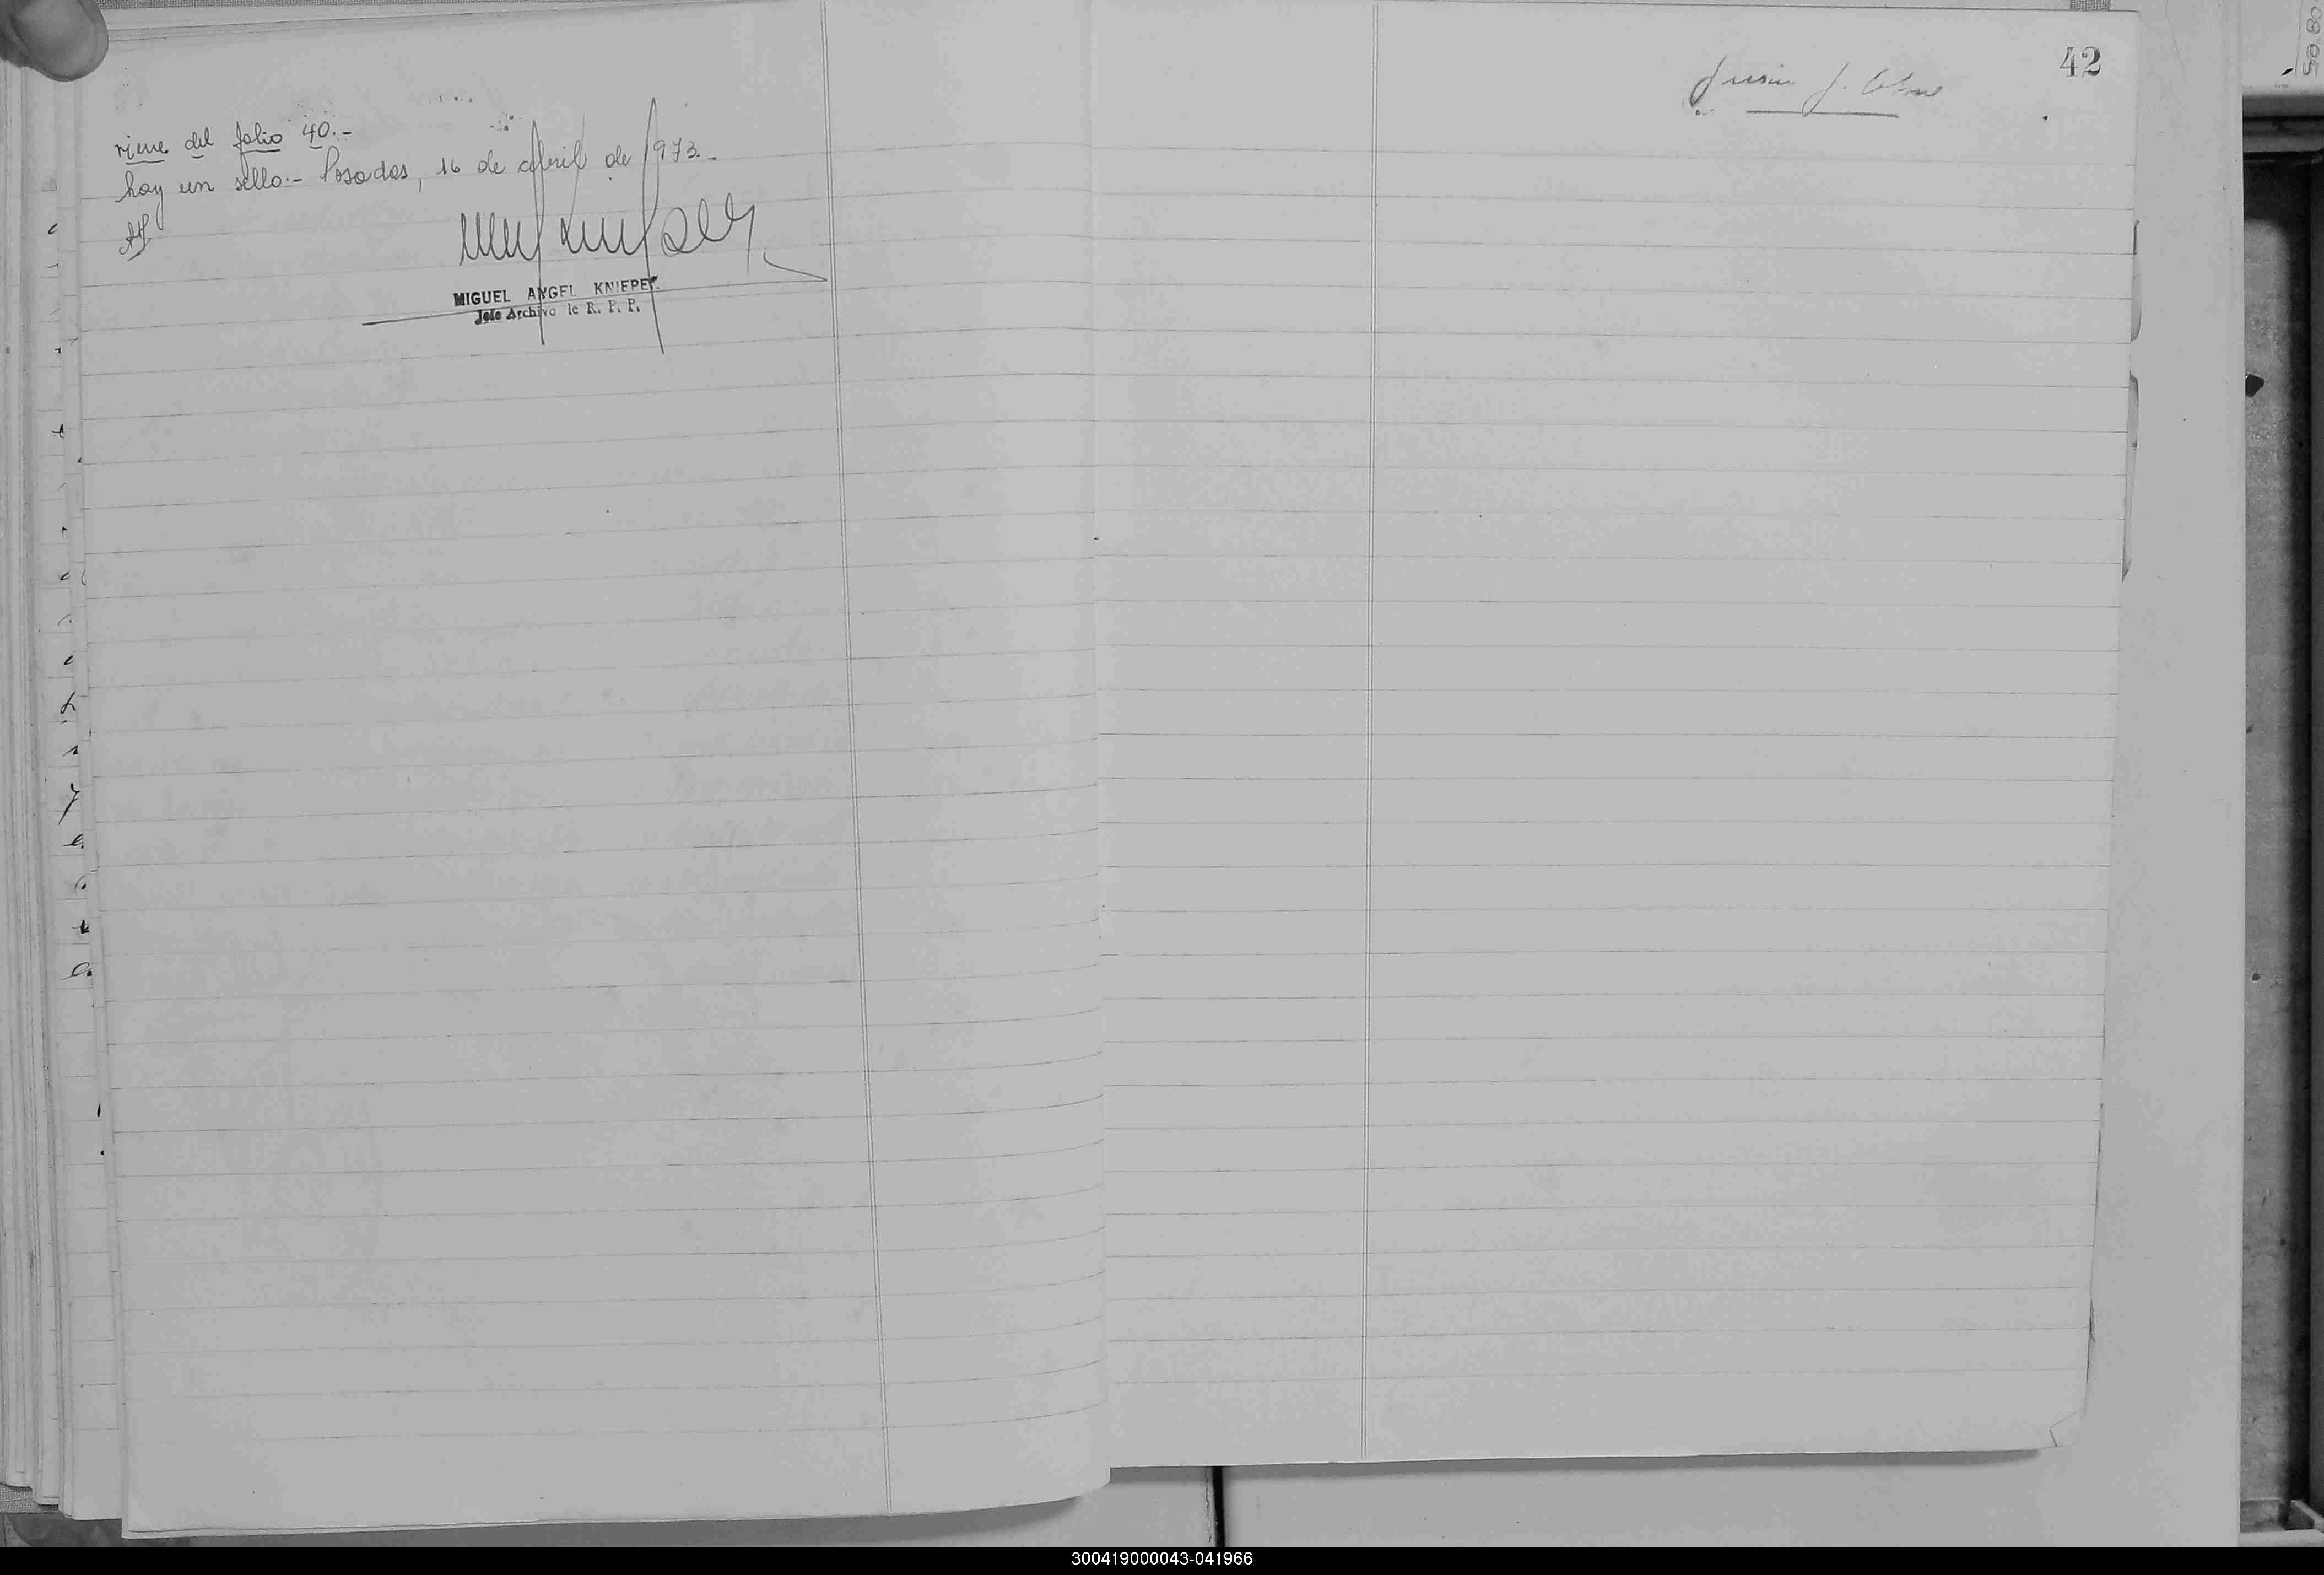 viene del folio 40.-
hay un sello.- Posadas, 16 de abril de 1973.-
MIGUEL ANGEL KNIEPER
Jefe Archivo de R. P. P.
42
300419000043-041966